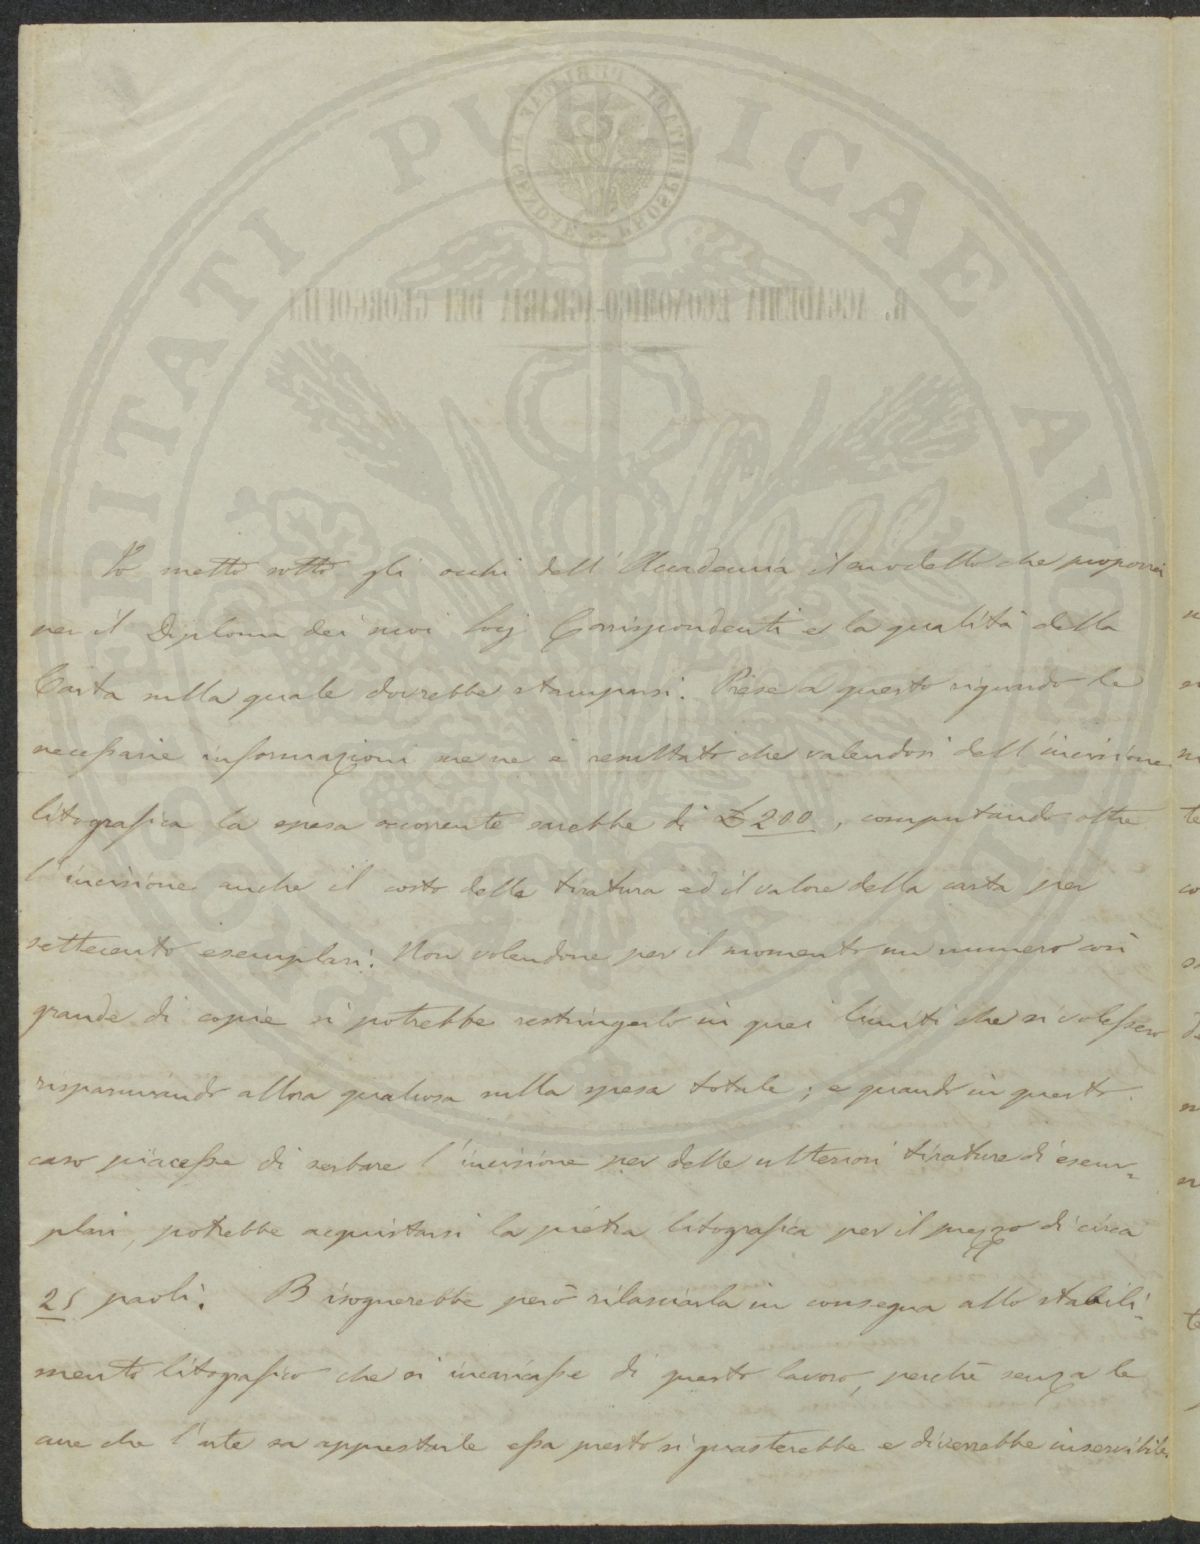 Io metto sotto gli occhi dell'Accademia il modello che proporrei
per il Diploma dei nuovi Socj Corrispondenti e la qualità della
Carta sulla quale dovrebbe stamparsi. Prese a questo riguardo le
necessarie informazioni me ne è resultato che valendosi dell'incisione
litografica la spesa occorrente sarebbe di £ 200, computando oltre
l'incisione anche il costo della tiratura ed il valore della carta per
settecento esemplari. Non volendone per il momento un numero così
grande di copie si potrebbe restringerlo in quei limiti che si volessero
risparmiando allora qualcosa sulla spesa totale; e quando in questo
caso piacesse di serbare l'incisione per delle ulteriori tirature di esem-
plari, potrebbe acquistarsi la pietra litografica per il prezzo di circa
25 paoli. Bisognerebbe però rilasciarla in consegna allo stabili-
mento litografico che si incaricasse di questo lavoro, perchè senza le
cure che l'arte sa apprestarle essa presto si guasterebbe e diverrebbe inservibile.
PROSPERITATI PUBLICAE AUGENDAE
R. ACCADEMIA ECONOMICO-AGRARIA DEI GEORGOFILI